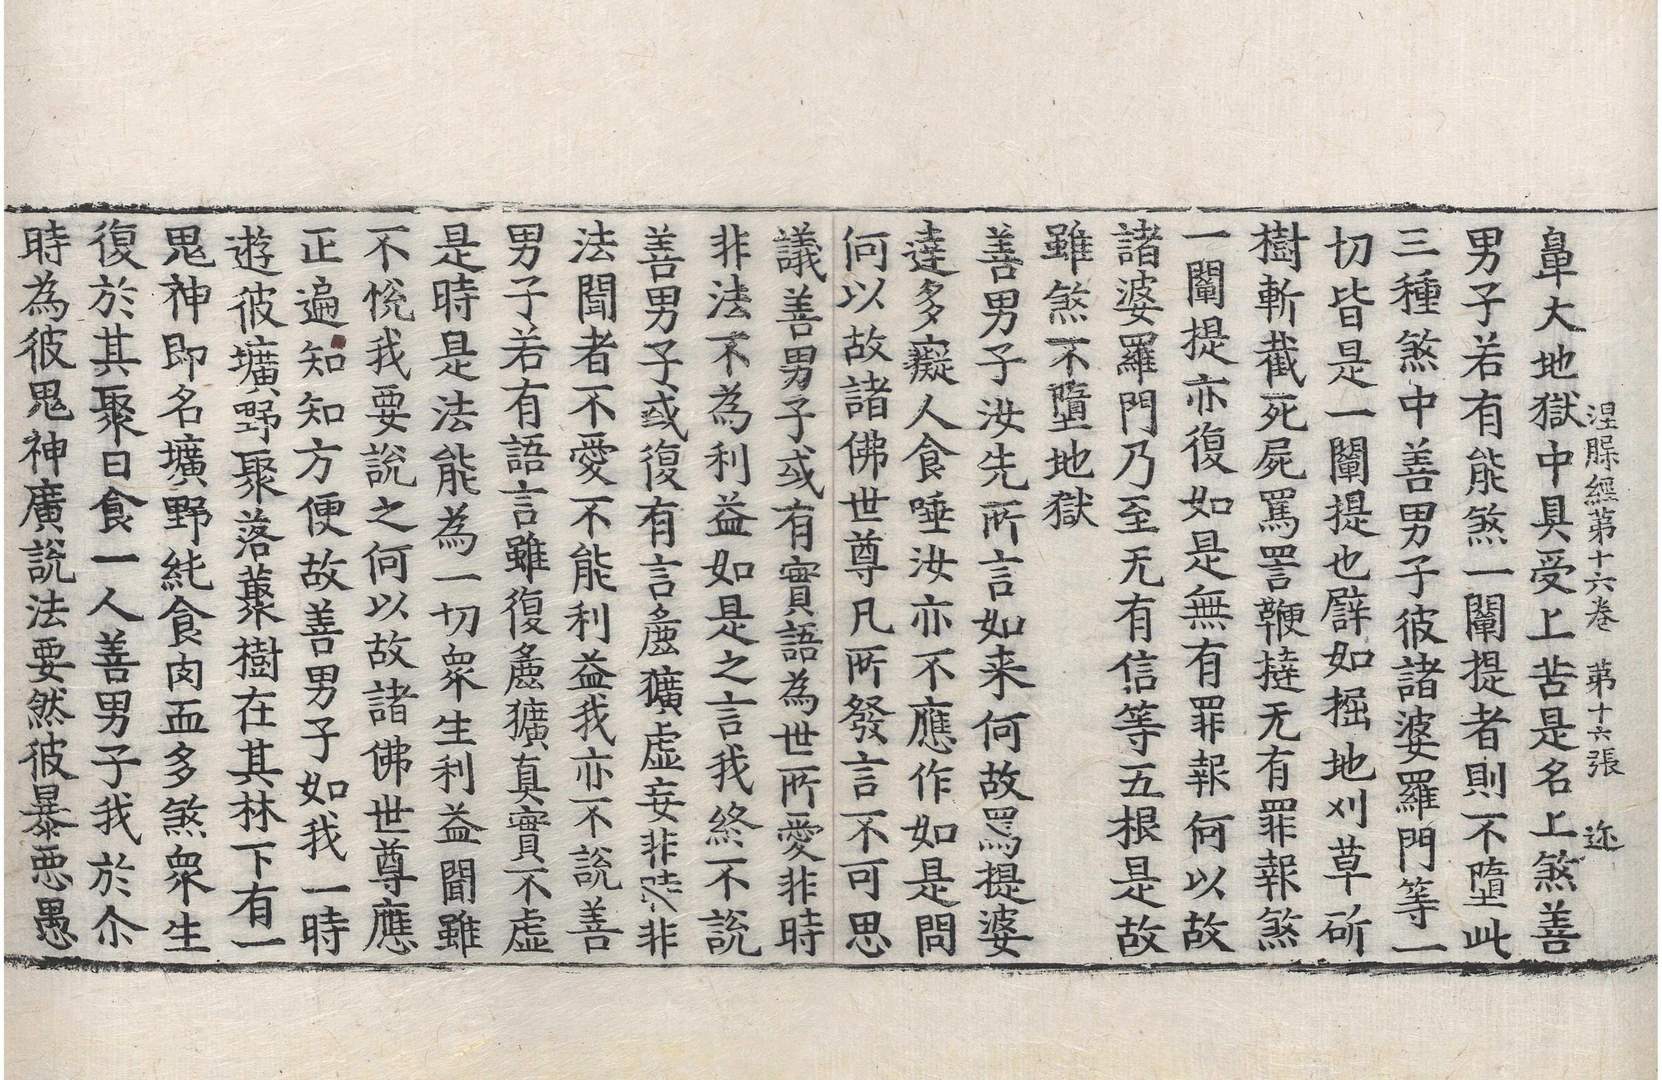 涅脲經第十六卷　第十六張　迩
鼻大地獄中具受上苦是名上煞善
男子若有能煞一闡提者則不墮此
三種煞中善男子彼諸婆羅門等一
切皆是一闡提也譬如掘地刈草斫
樹斬截死屍罵詈鞭撻无有罪報煞
一闡提亦復如是無有罪報何以故
諸婆羅門乃至无有信等五根是故
雖煞不墮地獄
善男子汝先所言如来何故罵提婆
達多癡人食唾汝亦不應作如是問
何以故諸佛世尊凡所發言不可思
議善男子或有實語為世所愛非時
非法不為利益如是之言我終不說
善男子或復有言麁獷虛妄非時非
法聞者不愛不能利益我亦不說善
男子若有語言雖復麁獷真實不虛
是時是法能為一切衆生利益聞雖
不悅我要說之何以故諸佛世尊應
正遍知知方便故善男子如我一時
遊彼壙野聚落藂樹在其林下有一
鬼神即名壙野純食肉血多煞衆生
復於其聚日食一人善男子我於尒
時為彼鬼神廣說法要然彼暴惡愚